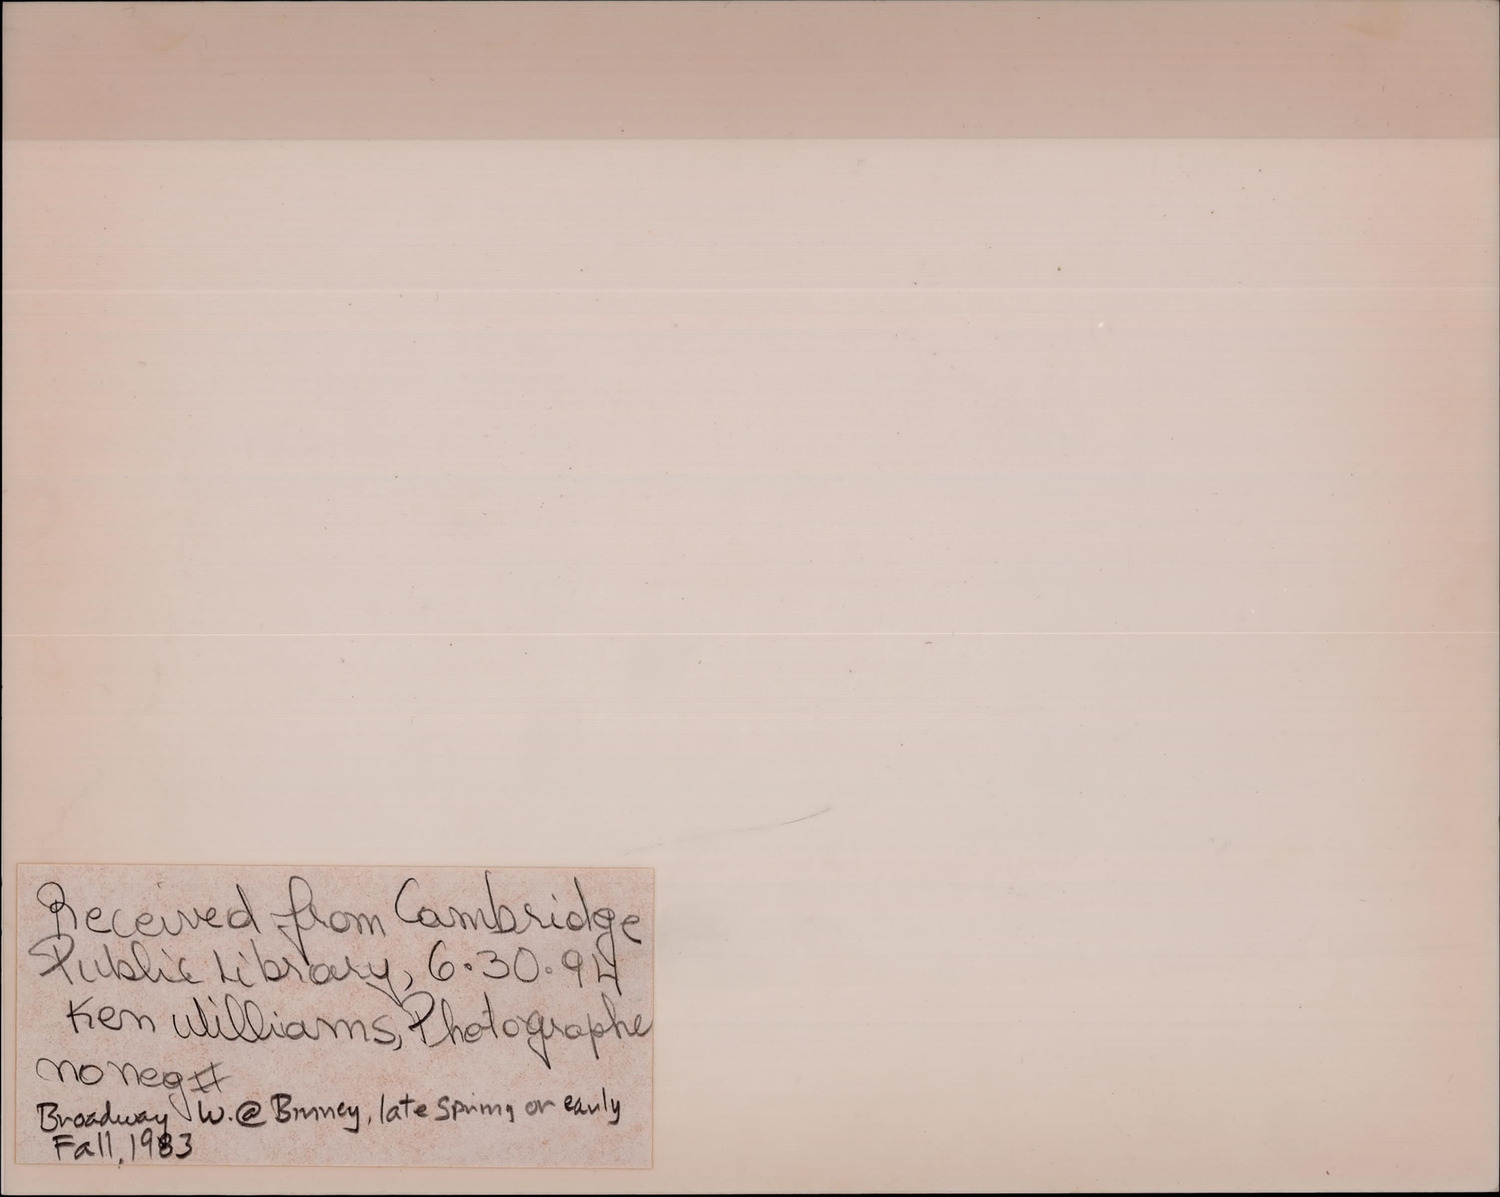 Received from Cambridge
Public Library, 6.30.94
Ken Williams, Photographe
no neg #
Broadway W. @ Binney, late spring or early
Fall, 1983